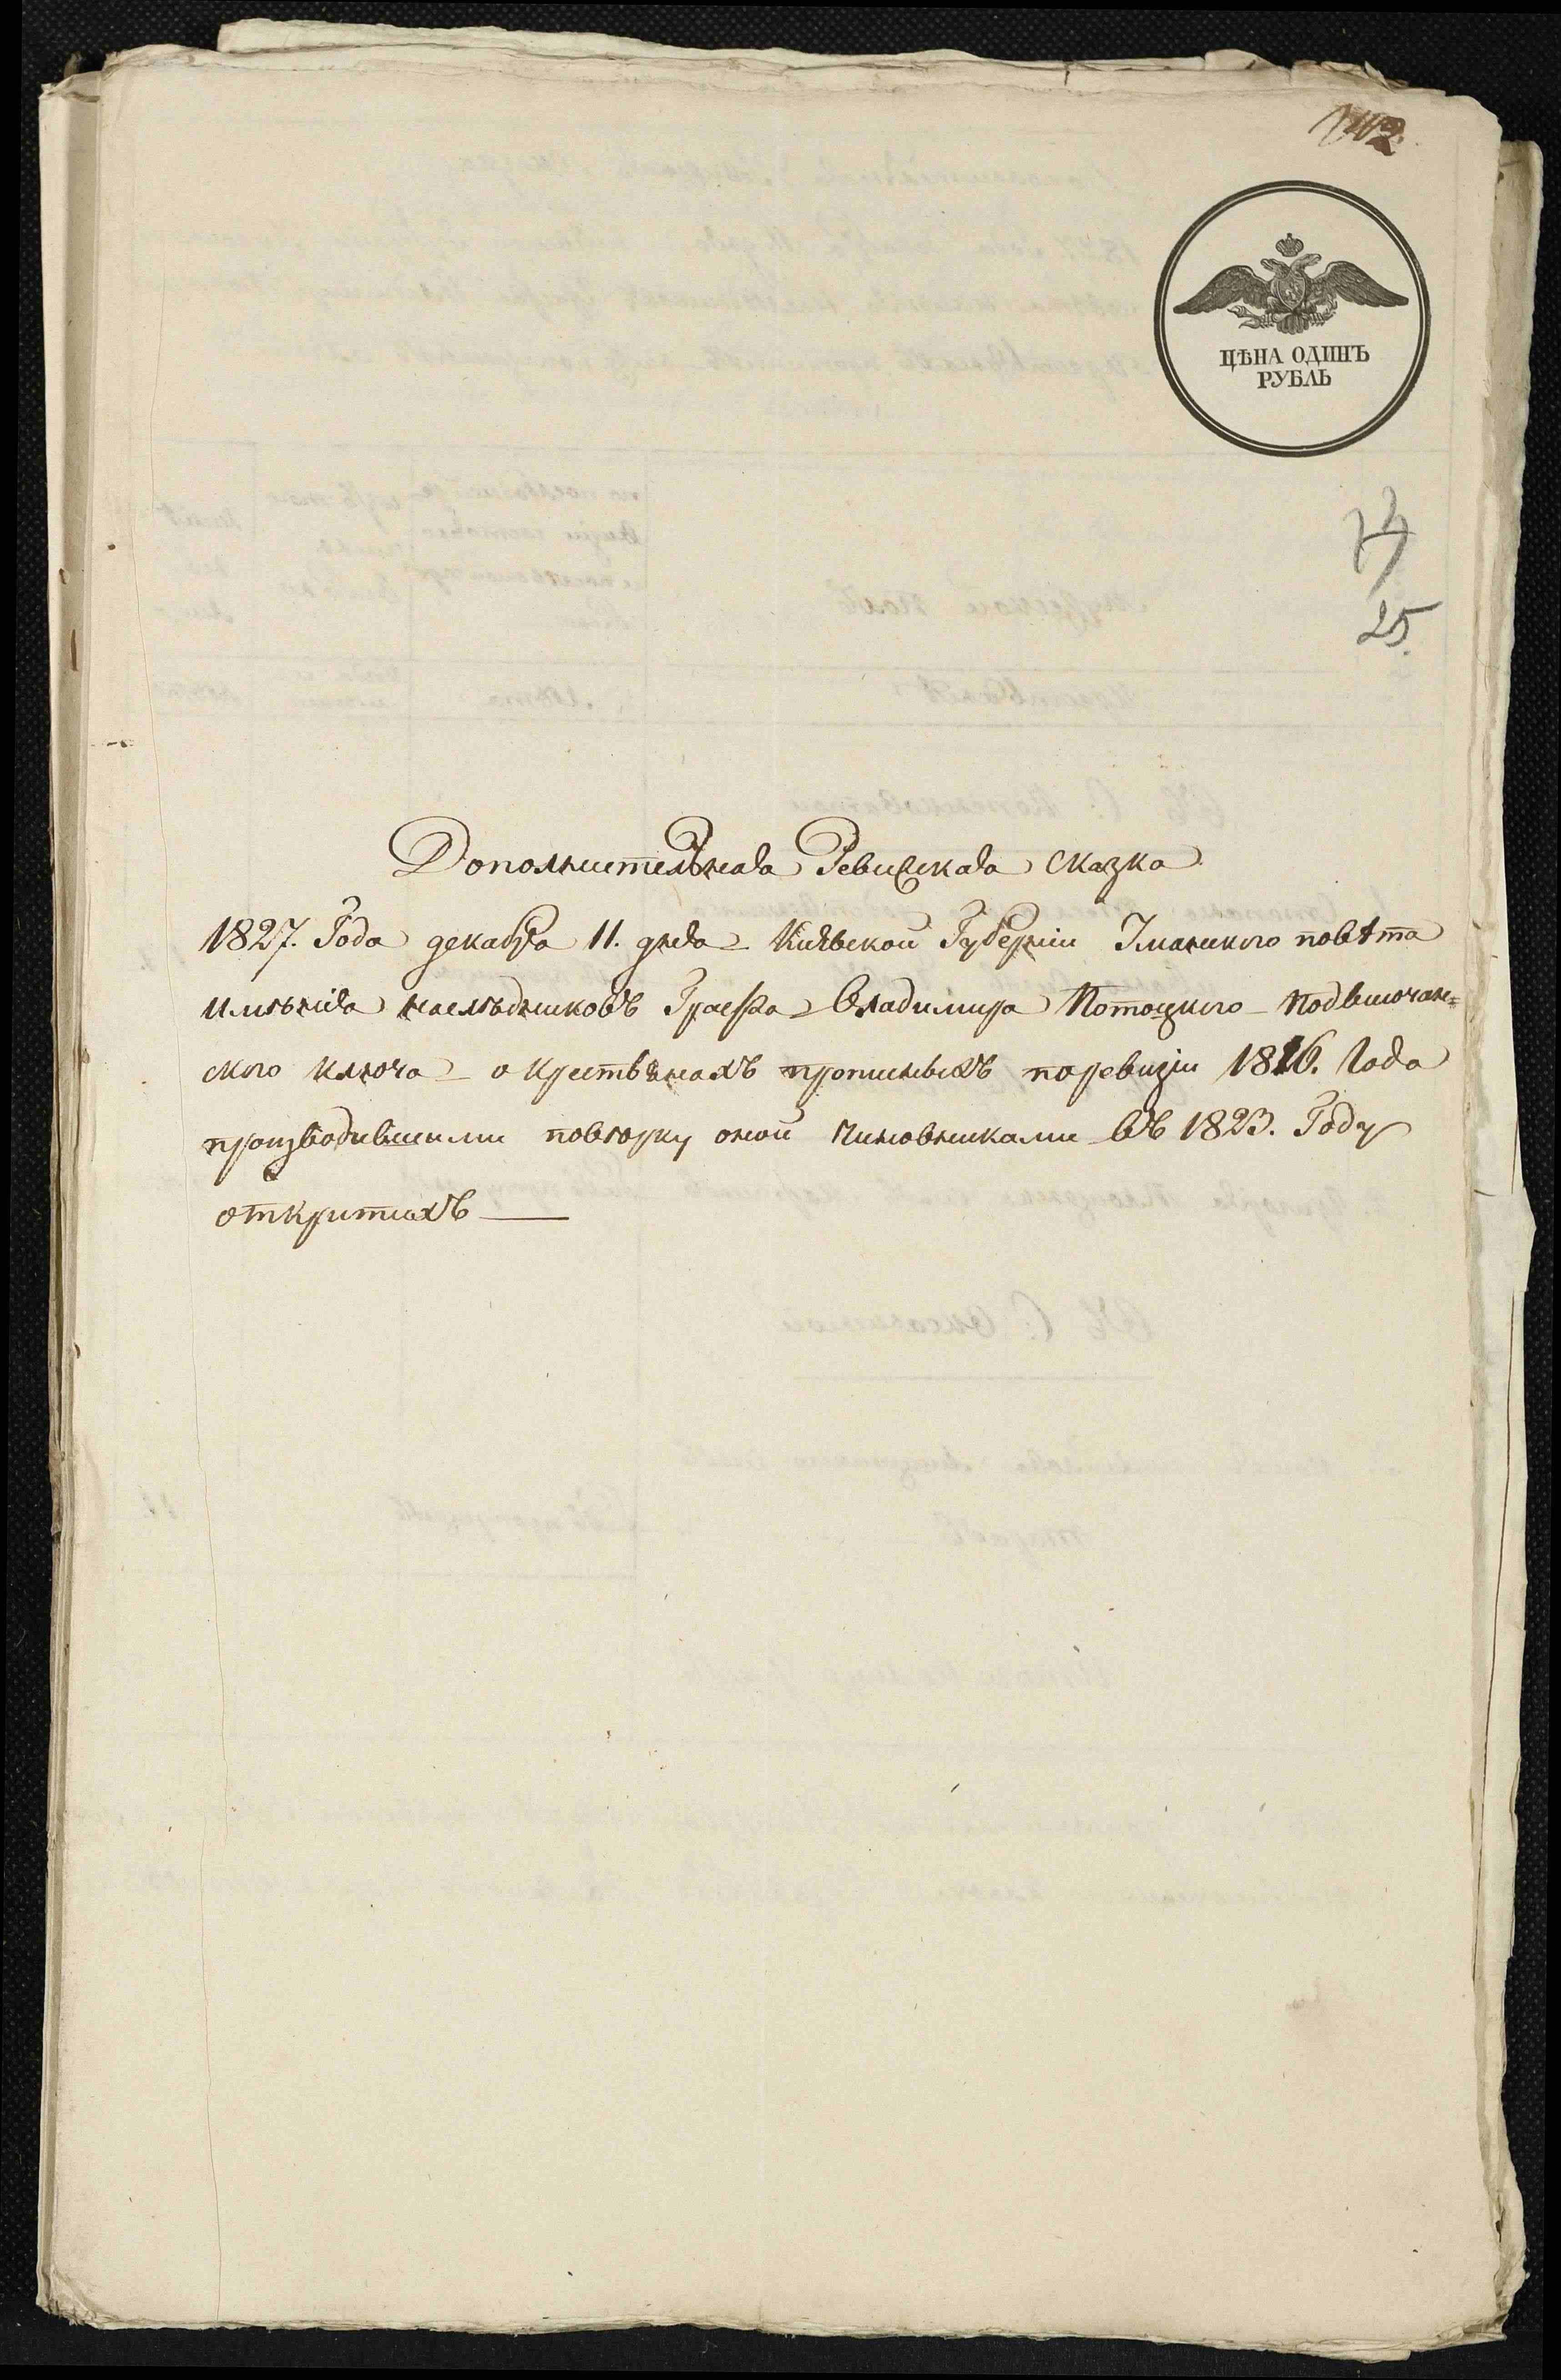 ЦѢНА ОДИНЪ
РУБЛЬ
25.
Дополнительная Ревизская сказка
1827. Года декабря 11. дня Киевской Губернии Уманского повѣта
имѣния наслѣдниковъ Графа Владимира Потоцкого Подвысочан=
ского ключа о крестьянахъ прописныхъ по ревизіи 1816. Года
производившими поверку оной чиновниками въ 1823. Году
открытыхъ